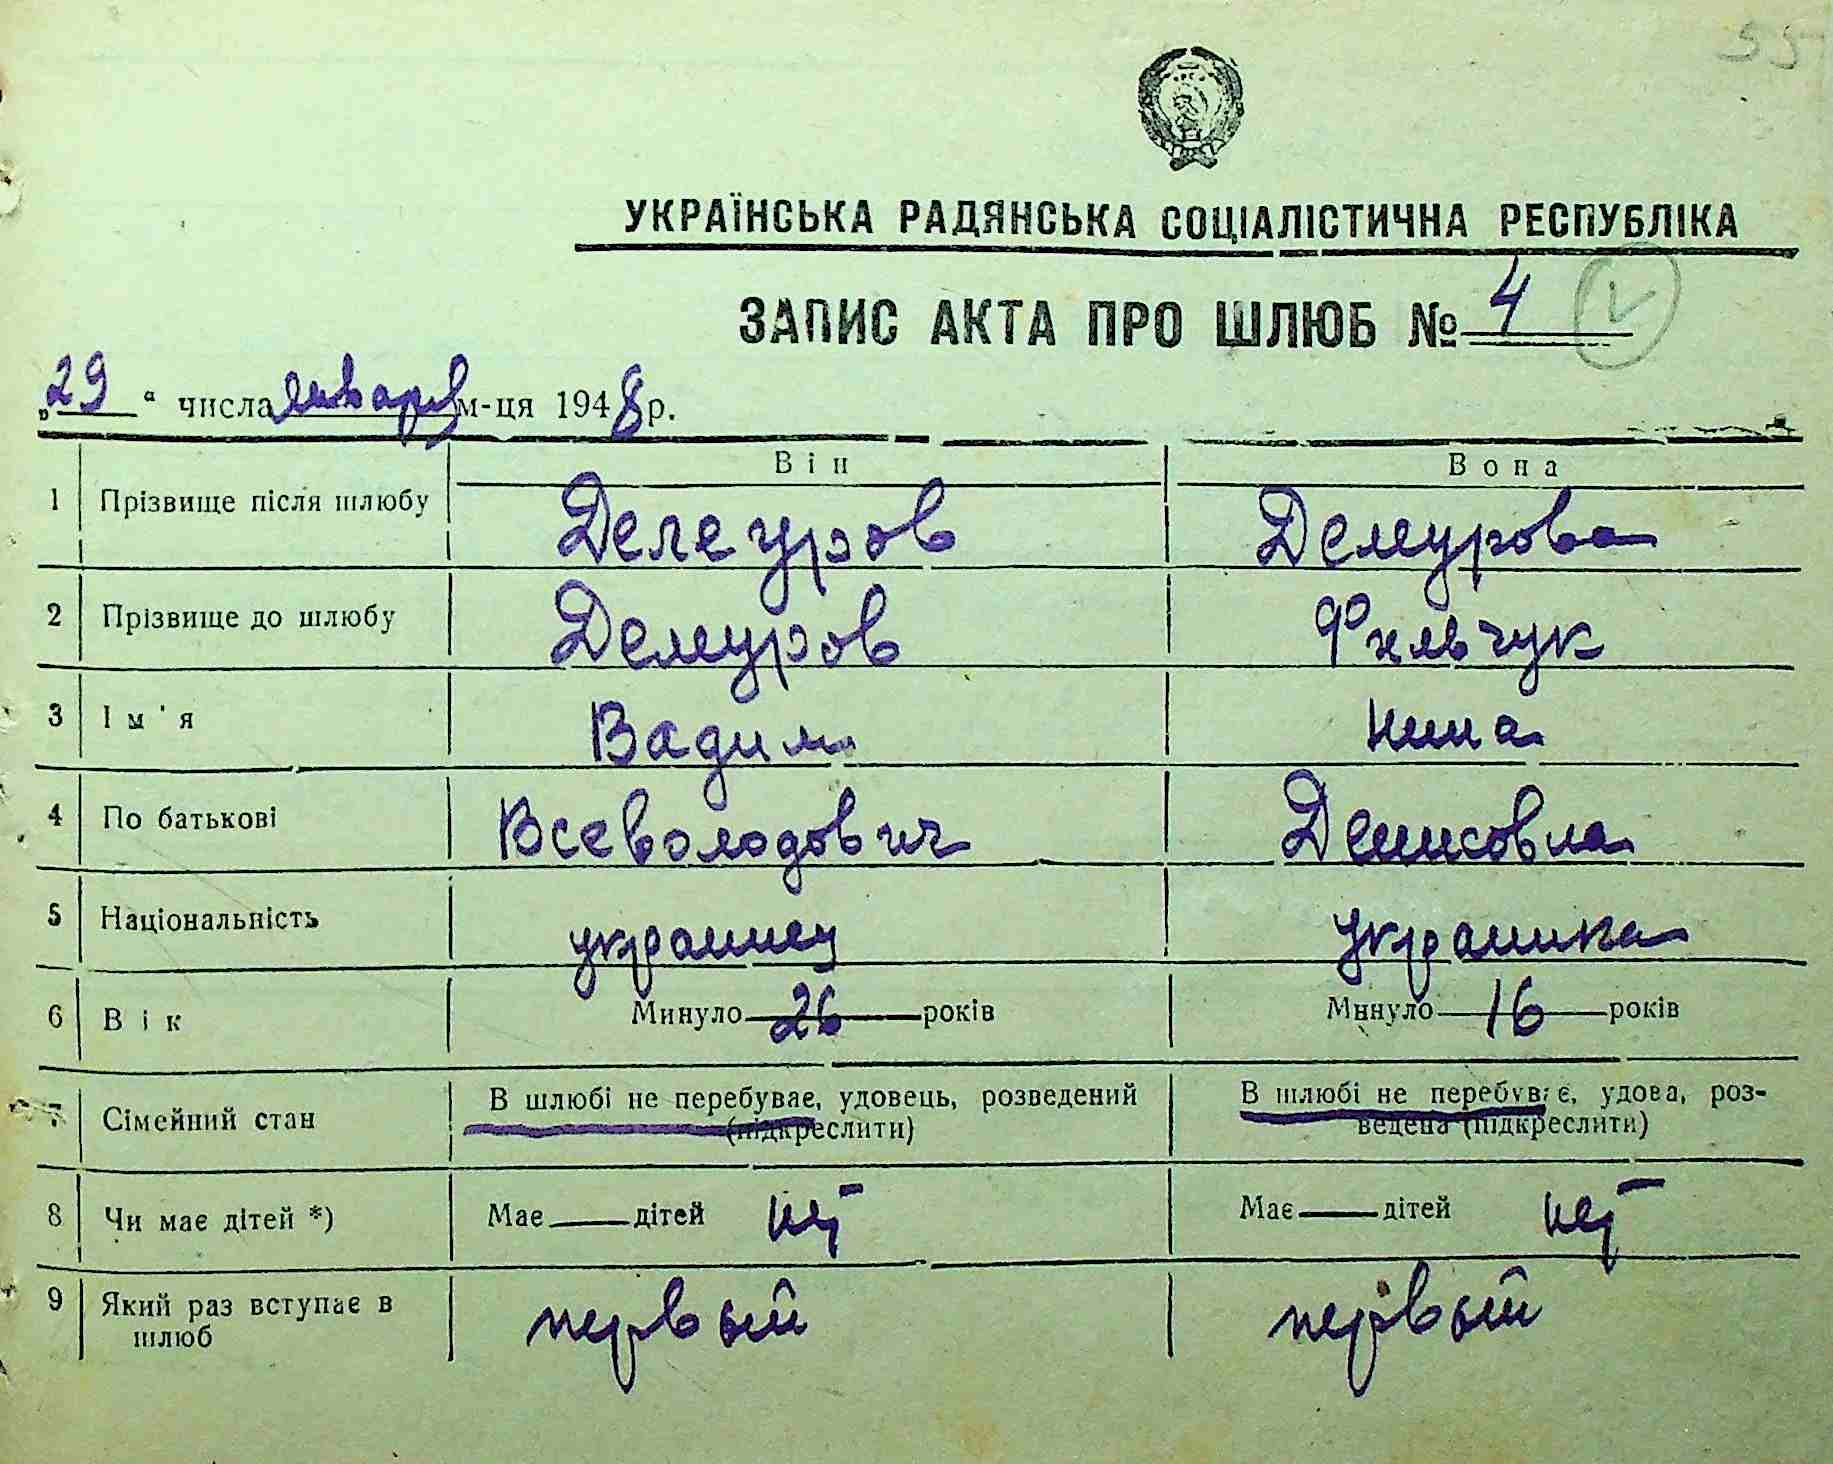 55
УКРАЇНСЬКА РАДЯНСЬКА СОЦІАЛІСТИЧНА РЕСПУБЛІКА
ЗАПИС АКТА ПРО ШЛЮБ № 4
„29“ числа января м-ця 1948 р.
Він Вона
1 Прізвище після шлюбу Делеуров Делеурова
2 Прізвище до шлюбу Делеуров Фильчук
3 Ім'я Вадим Нина
4 По батькові Всеволодович Денисовна
5 Національність украинец украинка
6 Вік Минуло 26 років Минуло 16 років
7 Сімейний стан В шлюбі не перебуває, удовець, розведений В шлюбі не перебуває, удова, роз-
(підкреслити) ведена (підкреслити)
8 Чи має дітей *) Має — дітей нет Має — дітей нет
9 Який раз вступає в первый первый
шлюб